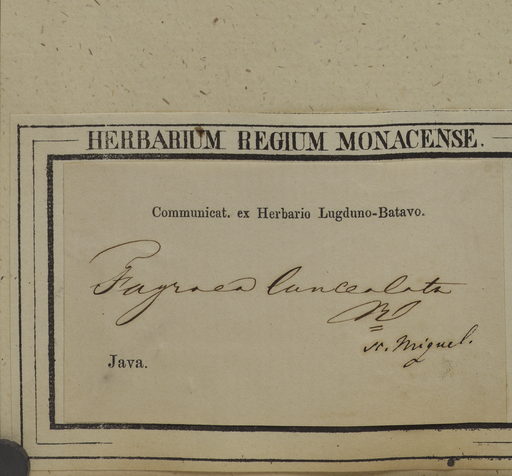 HERBARIUM REGIUM MONACENSE.
Communicat. ex Herbario Lugduno-Batavo.
Fagraea lanceolata
Bl
Miquel.
Java.